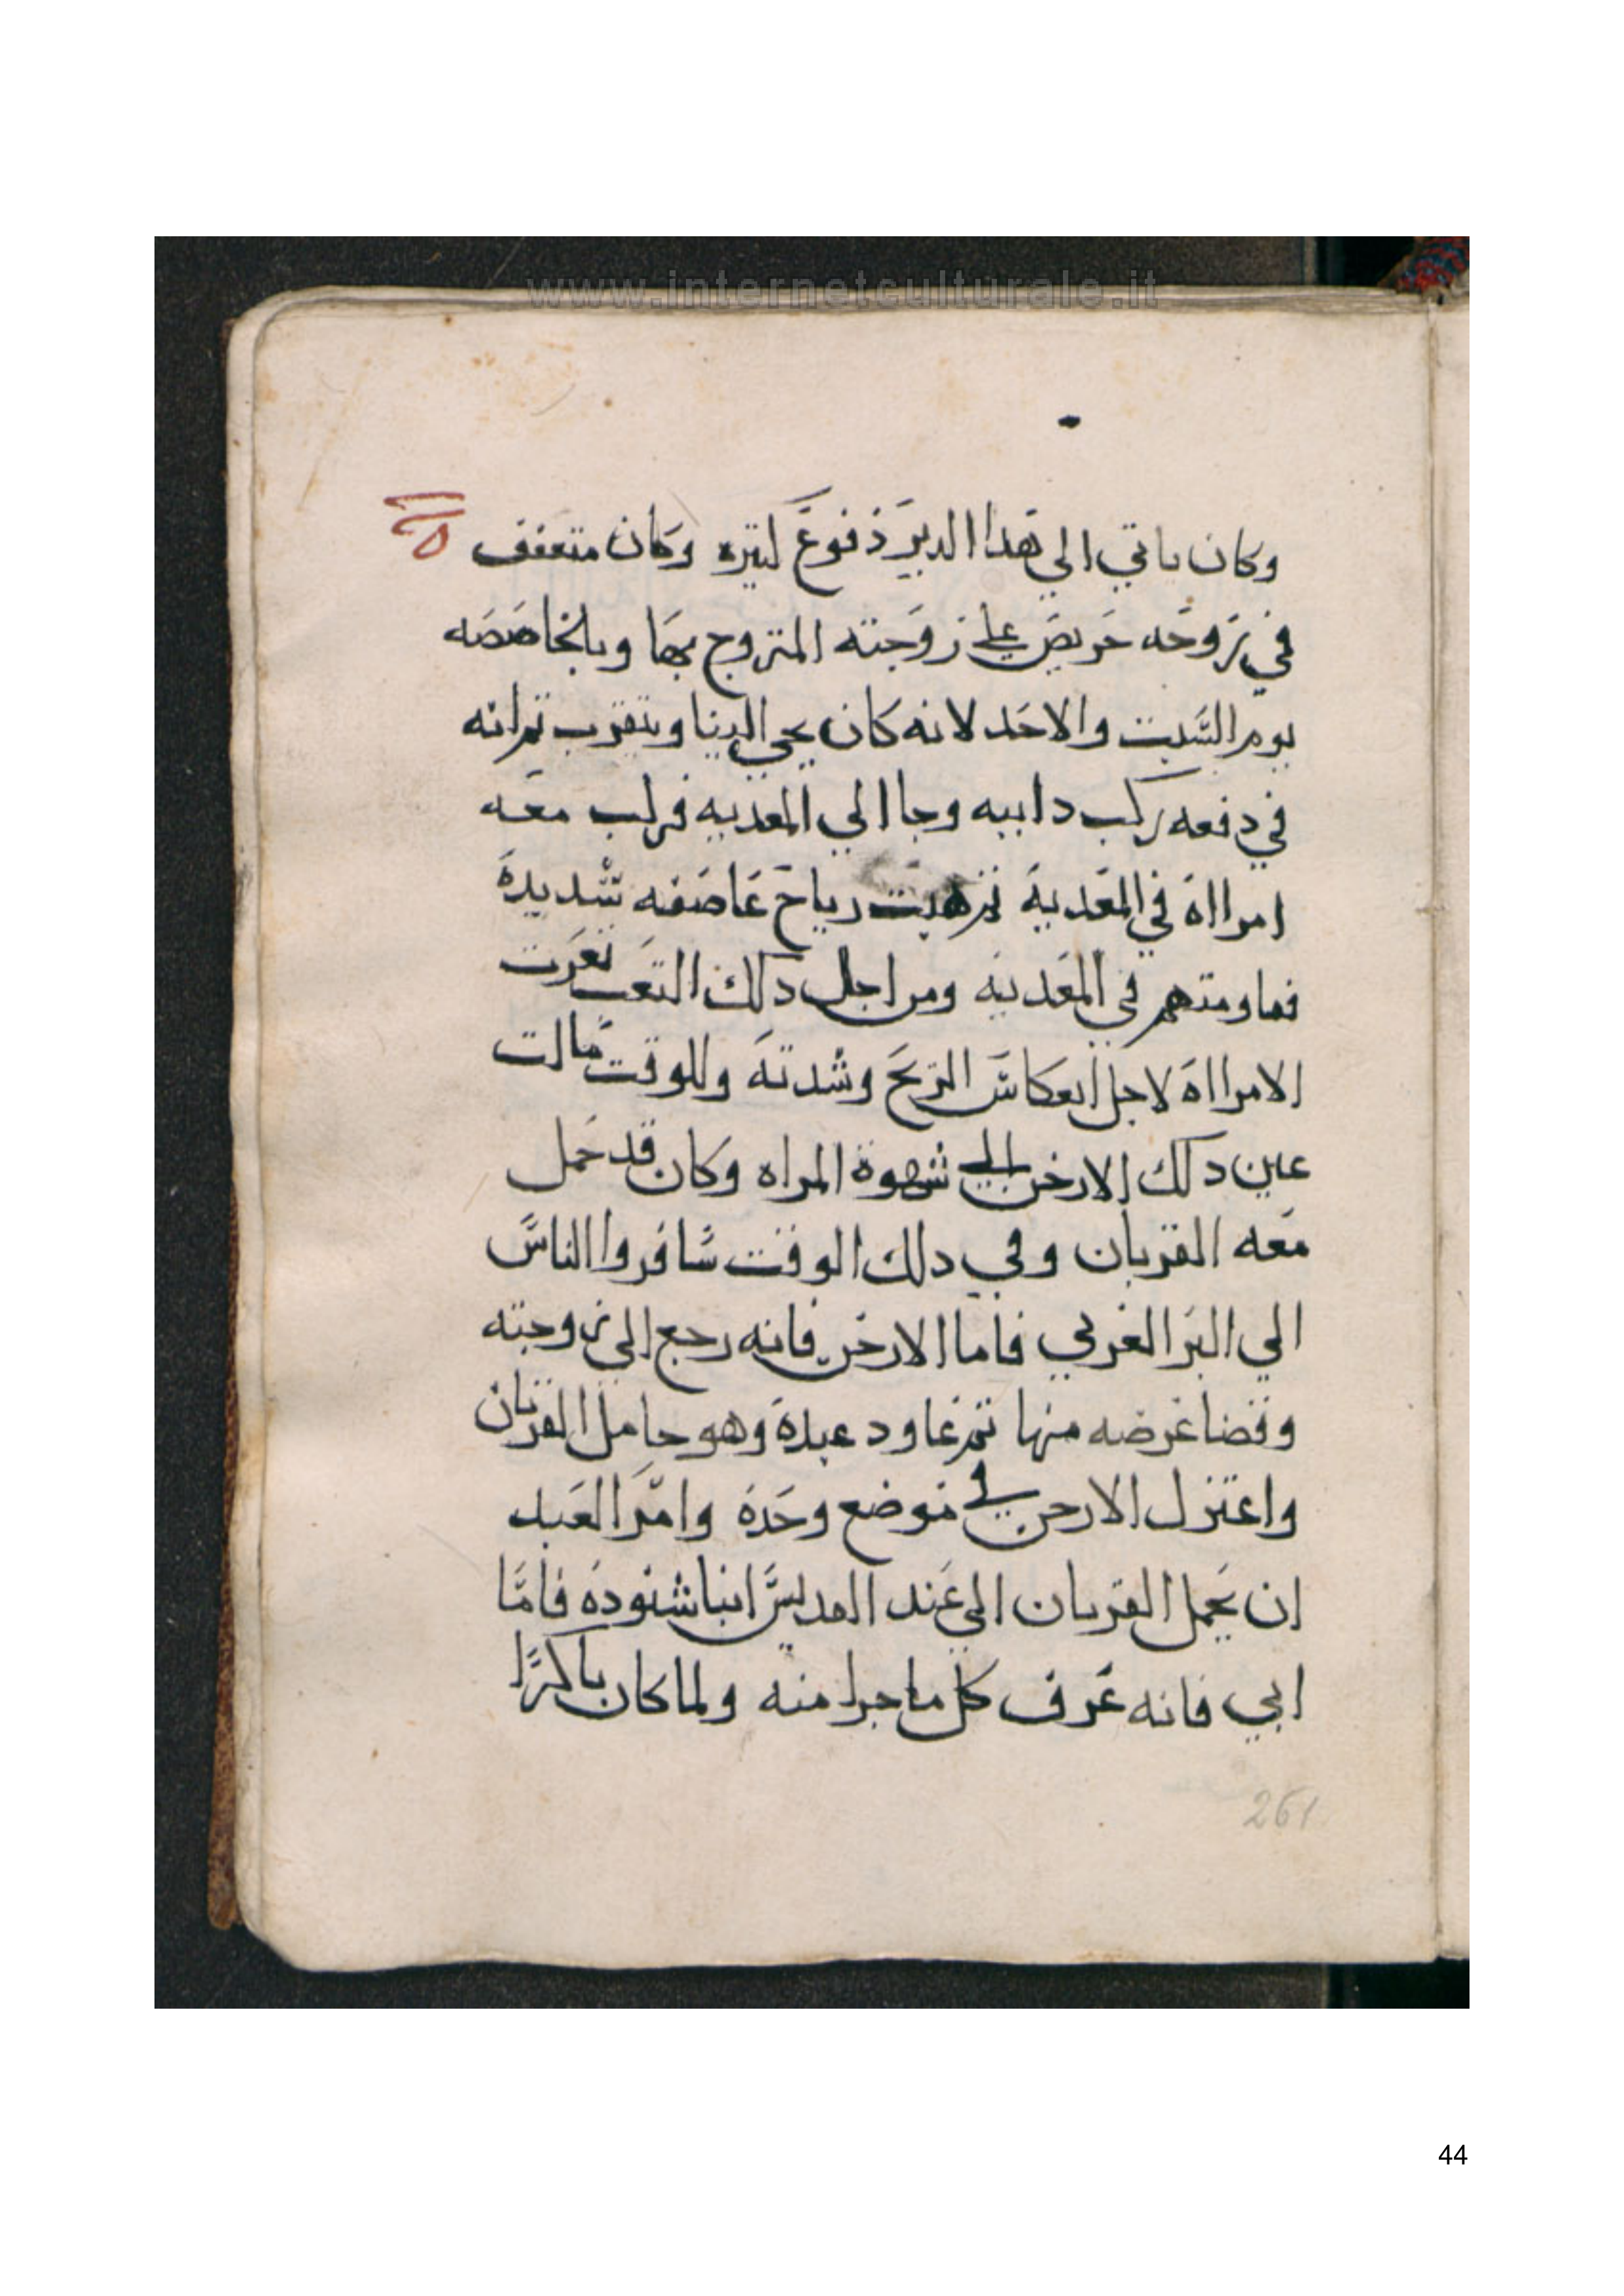 www.internetculturale.it
وكان ياتي الي هدا الدير دفوع كتيره وكان متعفف
في تزوجه حريص علي زوجته المتزوج بها وبالخاصصه
يوم السبت والاحد لانه كان يجي الينا ويتقرب ثم انه
في دفعه ركب دابيه وجا الي المعديه فركب معه
امرااة في المعدية ثم هبت رياح عاصفه شديدة
فماومتهم في المعديه ومن اجل دلك التعب تعرت
الامرااة لاجل انعكاس الريح وشدته وللوقت مالت
عين دلك الارخن الي شهوة المراه وكان قد حمل
معه القربان وفي دلك الوقت سافروا الناس
الي البر الغربي فاما الارخن فانه رجع الي زوجته
وقضا غرضه منها ثم عاود عبدة وهو حامل القربان
واعتزل الارخن في موضع وحدة وامر العبد
ان يحمل القربان الي عند القديس انبا شنوده فاما
ابي فانه عرف كل ما جرا منه ولما كان باكرا
261
44